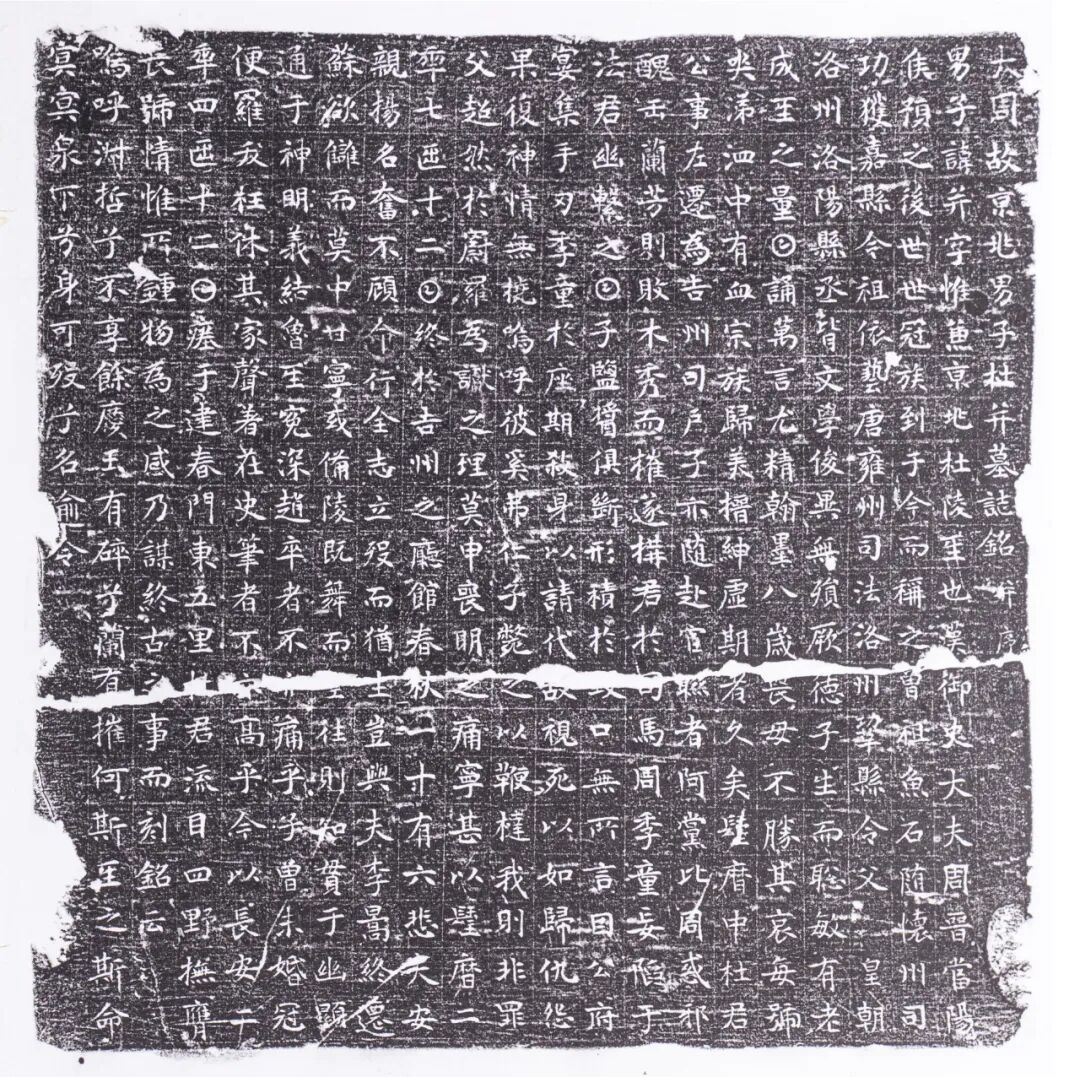 大周故京兆男子杜并墓誌銘并序
男子諱并字惟兼京兆杜陵𤯔也漢御史大夫周晉當陽
侯預之後世世冠族到于今而稱之曾祖魚石隨懷州司
功獲嘉縣令祖依藝唐雍州司法洛州鞏縣令父皇朝
洛州洛陽縣丞皆文學俊異無殞厥德子生而聡敏有老
成𤯔之量𡆠誦萬言尤精翰墨八歲喪母不勝其哀每號
哭涕泗中有血宗族歸美搢紳虛期者久矣𨲢曆中杜君
公事左遷為吉州司戶子亦隨赴官聯者阿黨比周惑邪
醜𠙺蘭芳則敗木秀而摧遂搆君於司馬周季童妄陷于
法君幽縶之𡆠子鹽醬俱斷形積於毀口無所言因公府
宴集手刃季童於座期殺身以請代故視死以如歸仇怨
果復神情無撓嗚呼彼奚弗仁子斃之以鞭撻我則非罪
父超然於罻羅為讞之理莫申喪明之痛寧甚以𨲢曆二
𠡦七𠥱十二𡆠終於吉州之廳館春秋一十有六悲夫安
親揚名奮不顧命行全志立歿而猶生豈與夫李暠終憲
蘇欲讎而莫中甘寧或備陵既舞而空往則知貫于幽顯
通于神明義結魯𤯔冤深趙卒者不亦痛乎子曾未婚冠
便罹夭枉永其家聲著在史筆者不亦高乎今以長安二
𠡦四𠥱十二𡆠瘞于建春門東五里杜君流目四野撫膺
長號情惟所鍾物為之感乃謀終古之事而刻銘云
嗚呼淑哲兮不享餘慶玉有碎兮蘭有摧何斯𤯔之斯命
冥冥泉下兮身可歿兮名逾令